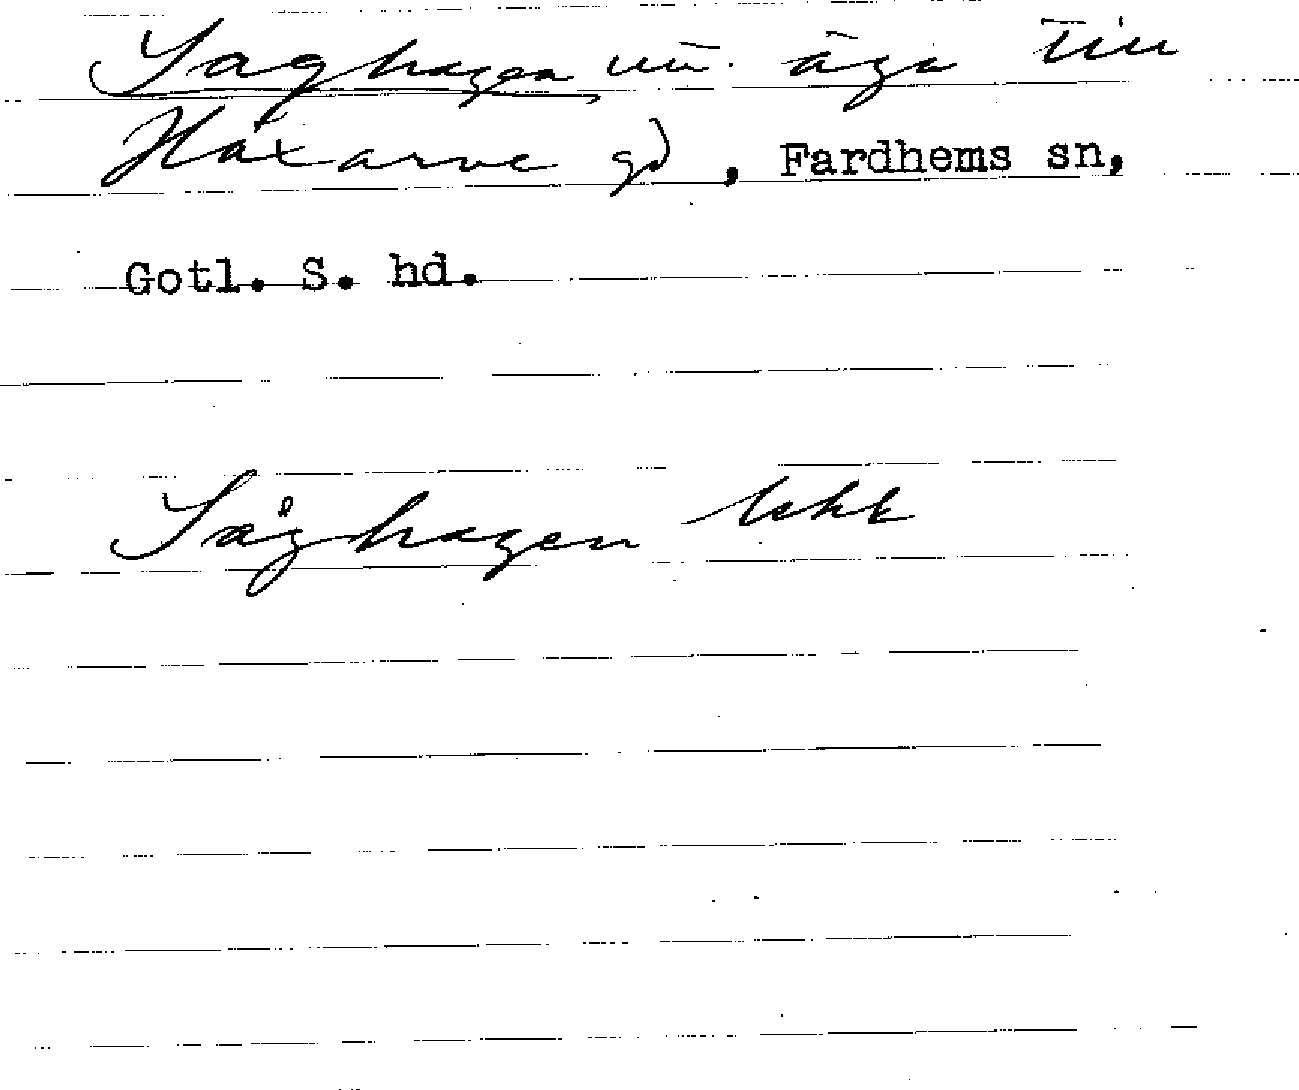 Saghagen äga till
Haxarve gd, Fardhems sn,
Gotl. S. hd.
Såghagen